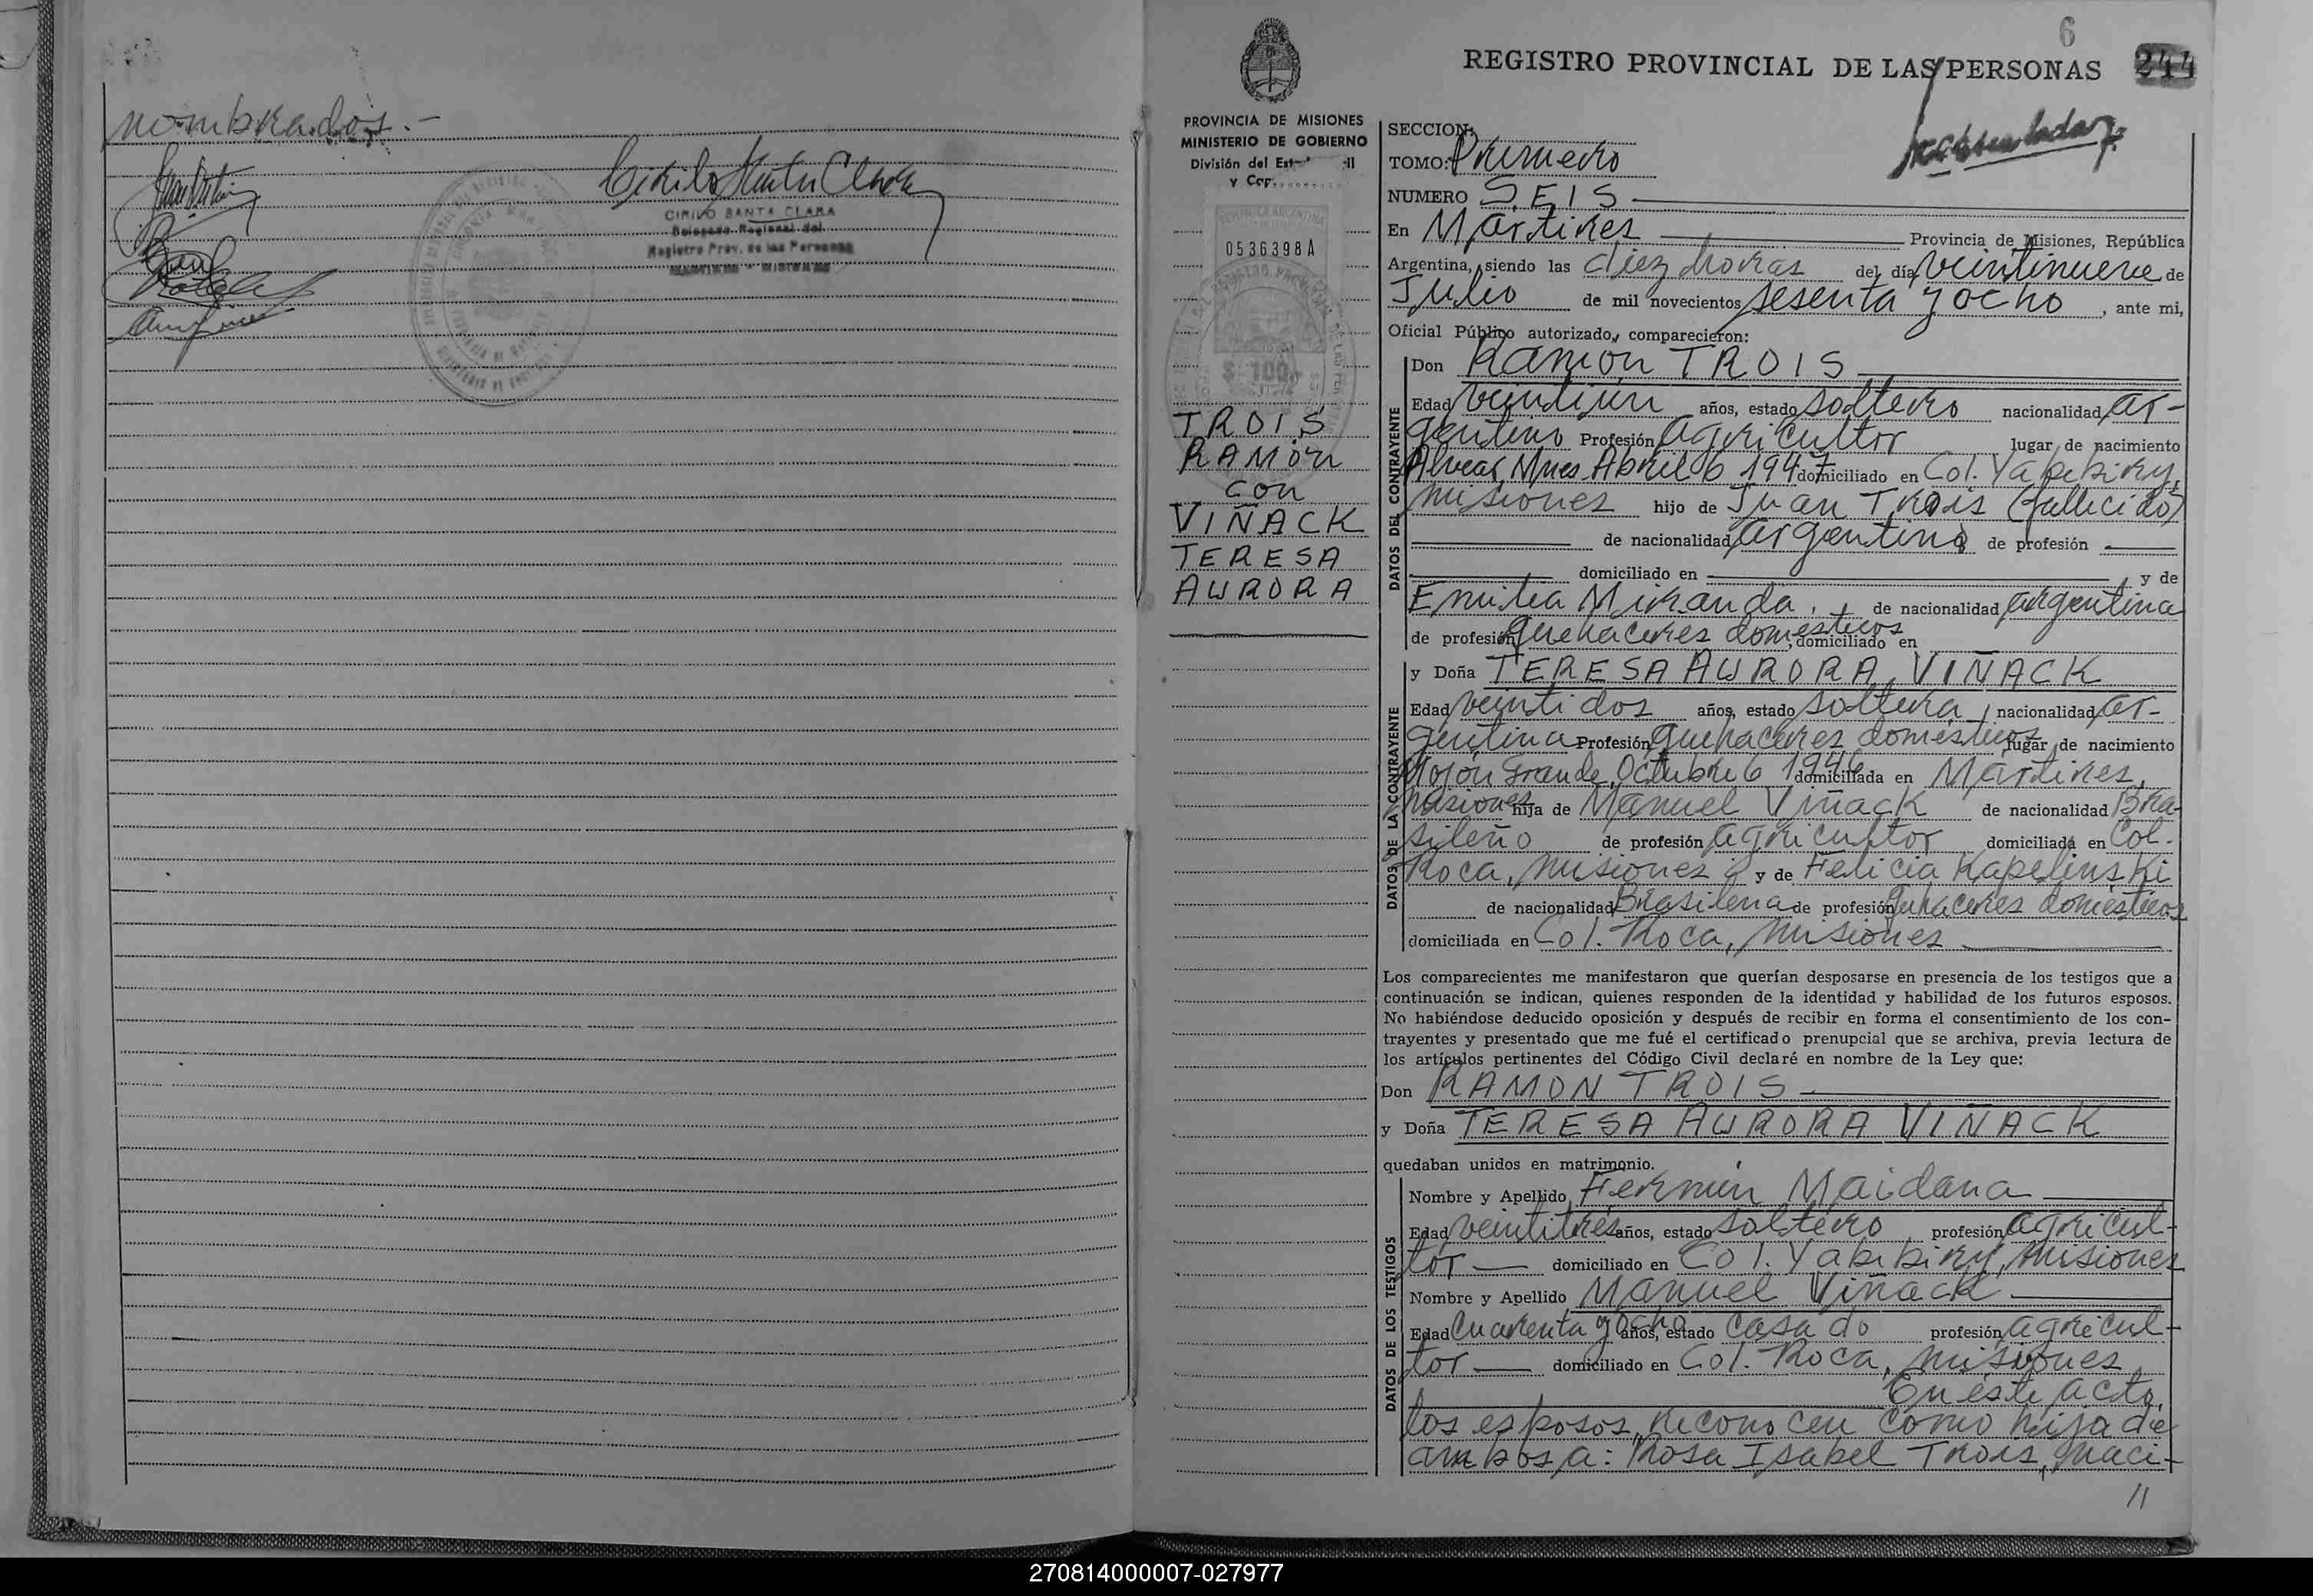 nombrados.-
Cirilo Santa Clara
CIRILO SANTA CLARA
Delegado Regional del
Registro Prov. de las Personas
MARTIRES - MISIONES
6
REGISTRO PROVINCIAL DE LAS PERSONAS
244
PROVINCIA DE MISIONES
MINISTERIO DE GOBIERNO
División del
y
0536398A
$ 100
TROIS
RAMÓN
con
VIÑACK
TERESA
AURORA
SECCION:
TOMO: Primero
NUMERO SEIS
En Mártires Provincia de Misiones, República
Argentina, siendo las diez horas del día veintinueve de
Julio de mil novecientos sesenta y ocho, ante mi,
Oficial Público autorizado, comparecieron:
DATOS DEL CONTRAYENTE
Don Ramón TROIS
Edad veintiún años, estado soltero nacionalidad ar-
gentino Profesión agricultor lugar de nacimiento
Alvear, Mnes Abril 6 1947 domiciliado en Col. Yabebiry,
Misiones hijo de Juan Trois (fallecido)
de nacionalidad argentina de profesión
domiciliado en y de
Emilia Miranda, de nacionalidad argentina
de profesión quehaceres domésticos, domiciliado en
DATOS DE LA CONTRAYENTE
y Doña TERESA AURORA VIÑACK
Edad veintidos años, estado soltera, nacionalidad ar-
gentina Profesión quehaceres domésticos lugar de nacimiento
Mojón Grande, Octubre 6 1946 domiciliada en Mártires,
Misiones hija de Manuel Viñack de nacionalidad Bra-
sileño de profesión agricultor domiciliada en Col.
Roca, Misiones y de Felicia Kapelinski
de nacionalidad Brasilena de profesión quhaceres domésticos
domiciliada en Col. Roca, Misiones
Los comparecientes me manifestaron que querían desposarse en presencia de los testigos que a
continuación se indican, quienes responden de la identidad y habilidad de los futuros esposos.
No habiéndose deducido oposición y después de recibir en forma el consentimiento de los con-
trayentes y presentado que me fué el certificado prenupcial que se archiva, previa lectura de
los artículos pertinentes del Código Civil declaré en nombre de la Ley que:
Don RAMON TROIS
y Doña TERESA AURORA VIÑACK
quedaban unidos en matrimonio.
DATOS DE LOS TESTIGOS
Nombre y Apellido Fermín Maidana
Edad veintitrés años, estado soltero profesión agricul-
tor domiciliado en Col. Yabebiry, Misiones
Nombre y Apellido Manuel Viñack
Edad Cuarenta y ocho años, estado casado profesión agricul-
tor domiciliado en Col. Roca, Misiones
En éste acto,
los esposos, reconocen como hija de
ambos a: Rosa Isabel Trois, naci-
//
270814000007-027977